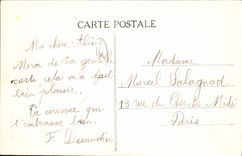 CARTE POSTALE
Ma chère Aline
Merci de ta gentille
carte cela m'a fait
bien plaisir.
Ta cousine qui
t'embrasse bien.
F. Decandin
Madame
Marcel Salagnad
13 rue du Cherche Midi
Paris